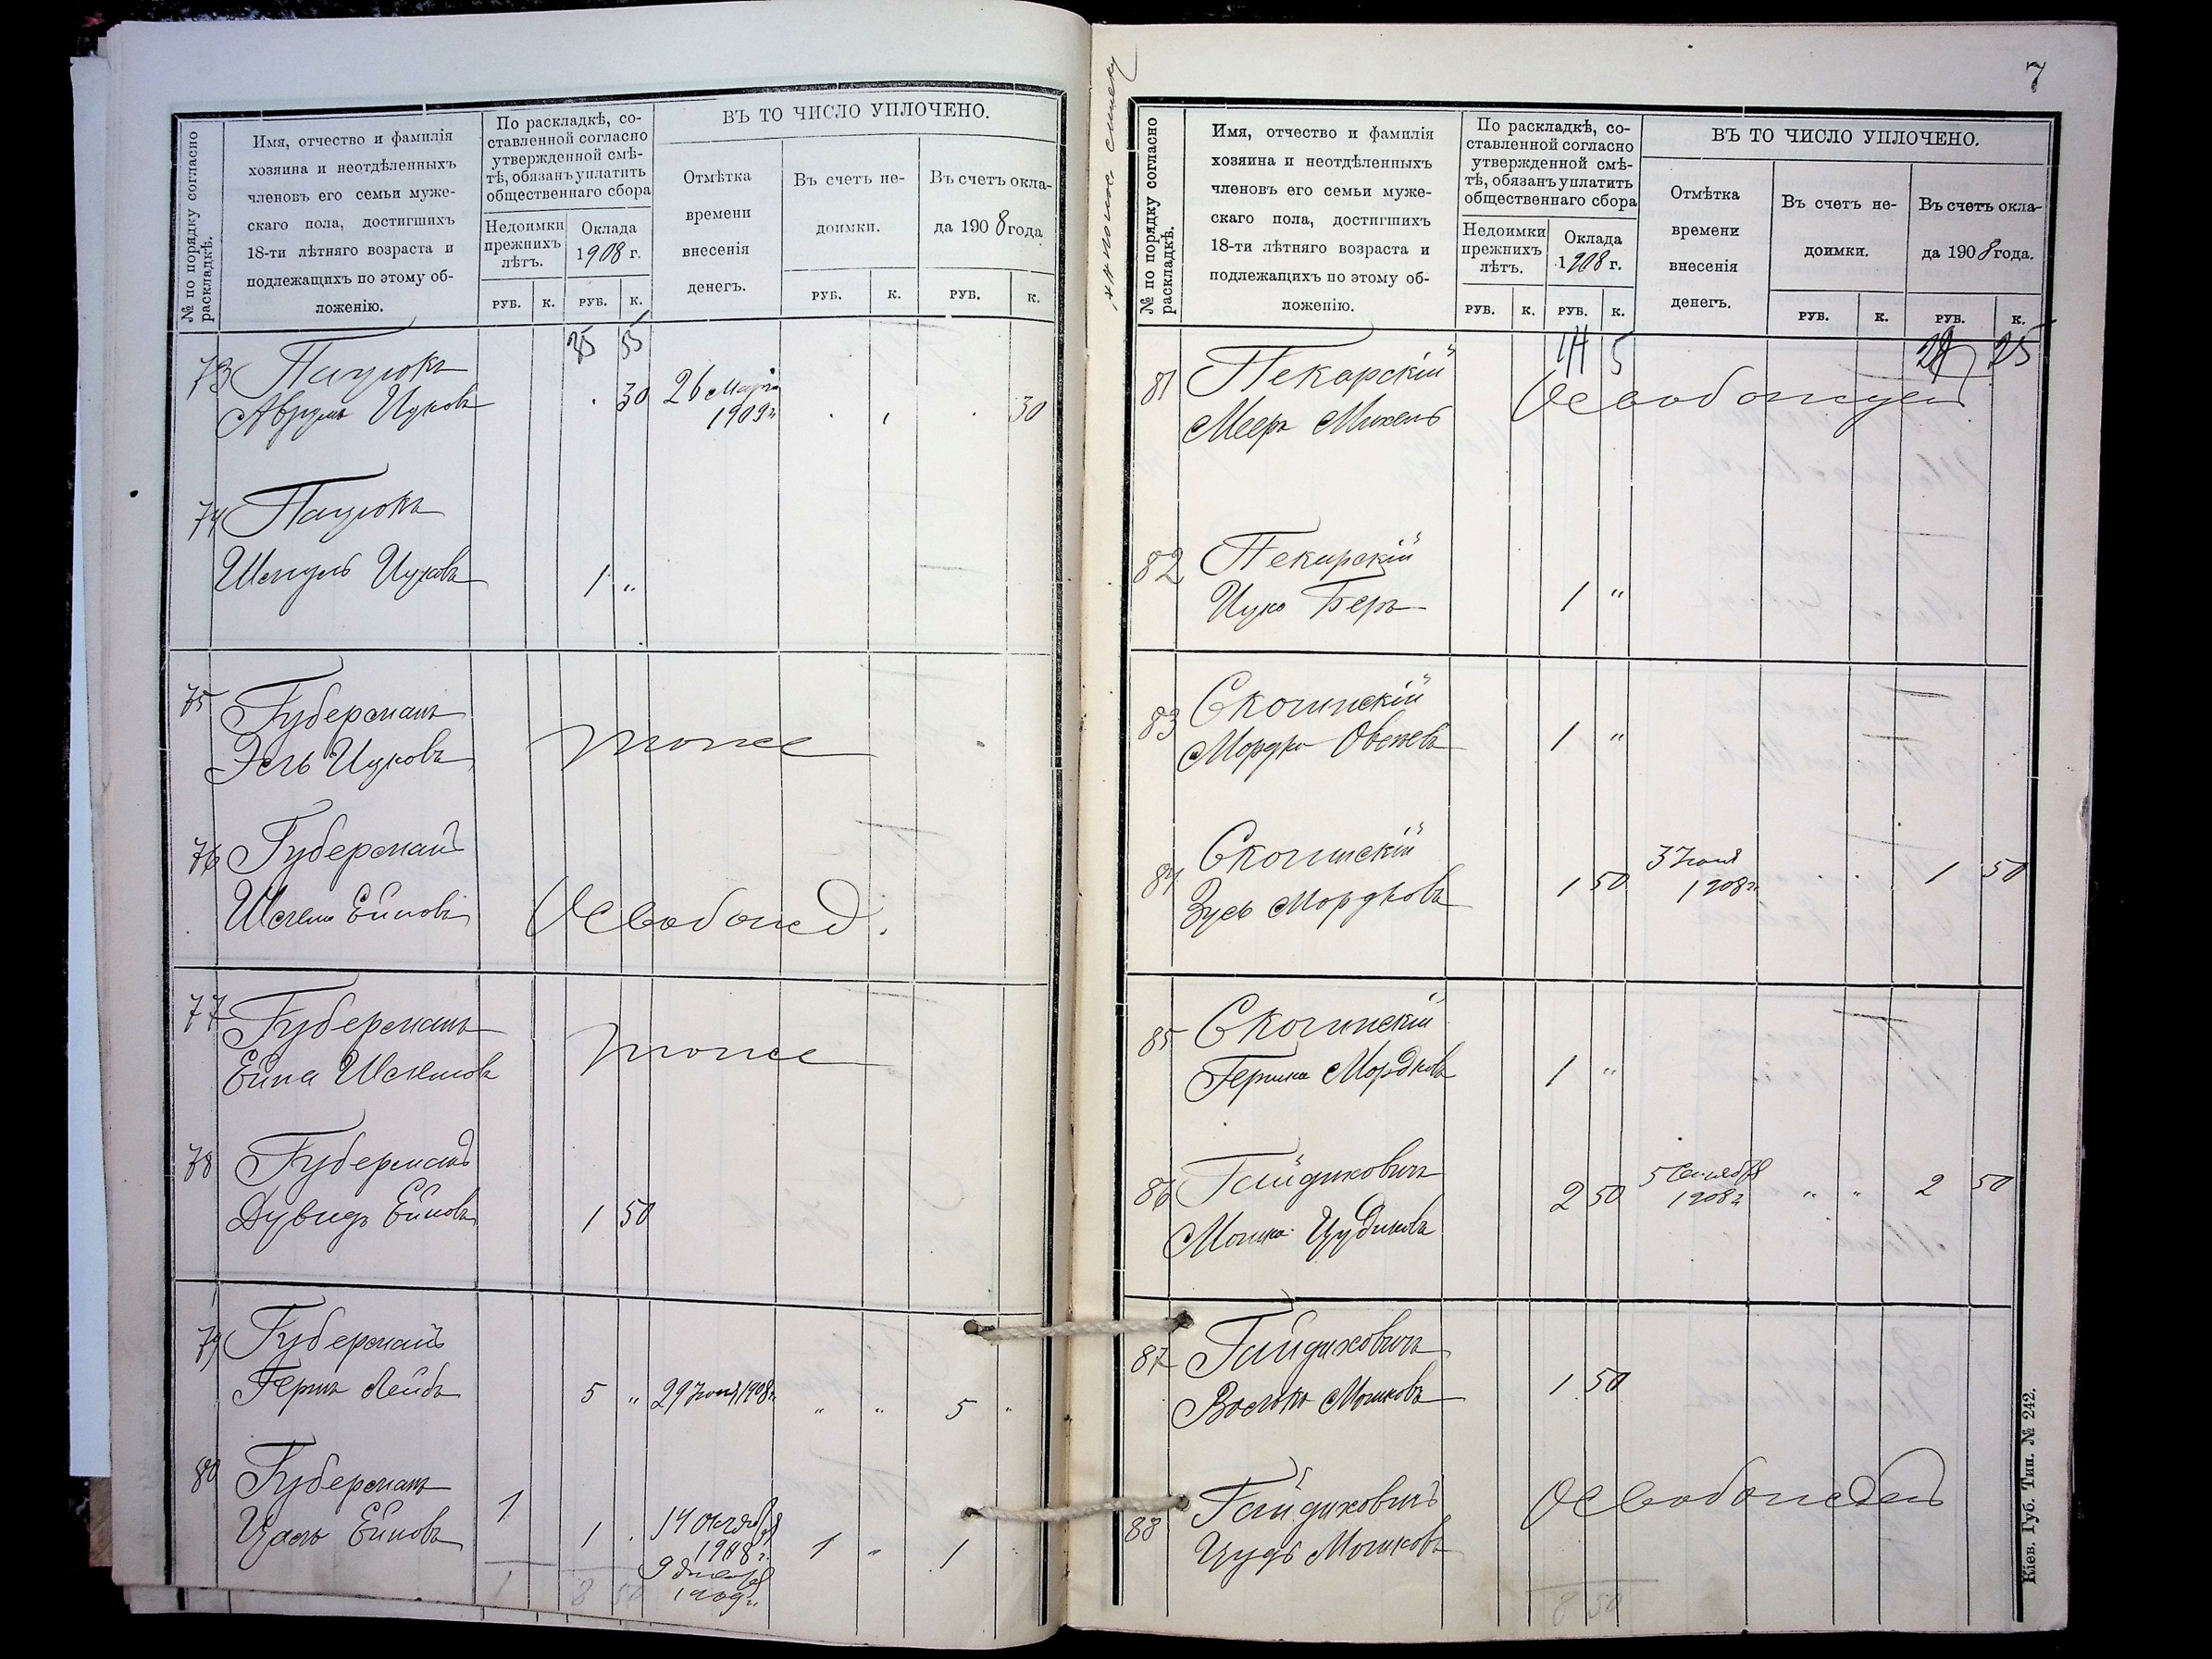 № по порядку согласно
раскладкѣ.
Имя, отчество и фамилія
хозяина и неотдѣленныхъ
членовъ его семьи муже-
скаго пола, достигшихъ
18-ти лѣтняго возраста и
подлежащихъ по этому об-
ложенію.
По раскладкѣ, со-
ставленной согласно
утвержденной смѣ-
тѣ, обязанъ уплатить
общественнаго сбора
Недоимки
прежнихъ
лѣтъ.
Оклада
1908 г.
РУБ. К. РУБ. К.
ВЪ ТО ЧИСЛО УПЛОЧЕНО.
Отмѣтка
времени
внесенія
денегъ.
Въ счетъ не-
доимки.
Въ счетъ окла-
да 1908 года
РУБ. К. РУБ. К.
55
73
Аврумъ Ицковъ 30 26 Марта 30
1909г
74
Ицковъ 1 "
75 Губерманъ
Эль Ицковъ тоже
76 Губерманъ
Ейновъ Освобожд.
77 Губерманъ
Ейна тоже
78 Губерманъ
Дувидъ Ейновъ 1 50
79 Губерманъ
Герш Лейбъ 5 " 29 1908г. " " 5 "
80 Губерманъ
Ейновъ 1 1 14 Октября 1 " 1
1908 г.
9
1909г.
1 8 50
7
№ по порядку согласно
раскладкѣ.
Имя, отчество и фамилія
хозяина и неотдѣленныхъ
членовъ его семьи муже-
скаго пола, достигшихъ
18-ти лѣтняго возраста и
подлежащихъ по этому об-
ложенію.
По раскладкѣ, со-
ставленной согласно
утвержденной смѣ-
тѣ, обязанъ уплатить
общественнаго сбора
Недоимки
прежнихъ
лѣтъ.
Оклада
1908 г.
РУБ. К. РУБ. К.
ВЪ ТО ЧИСЛО УПЛОЧЕНО.
Отмѣтка
времени
внесенія
денегъ.
Въ счетъ не-
доимки.
Въ счетъ окла-
да 1908 года.
РУБ. К. РУБ. К.
14 5 25
81 Пекарскій
Мееръ Михель
82 Пекарскій
Ицко Беръ 1 "
83
Мордко 1 "
84
Зусь Мордковъ 1 50 1908г. 1 50
85
Гершко Мордковъ 1 "
86 Гайдиховичъ 2 50 5 Сентября " " 2 50
1908г
Мошко
87 Гайдиховичъ
Волько Мошковъ 1 50
88 Гайдиховичъ Освобожденъ
Мошковъ
8 50
Кіев. Губ. Тип. № 242.